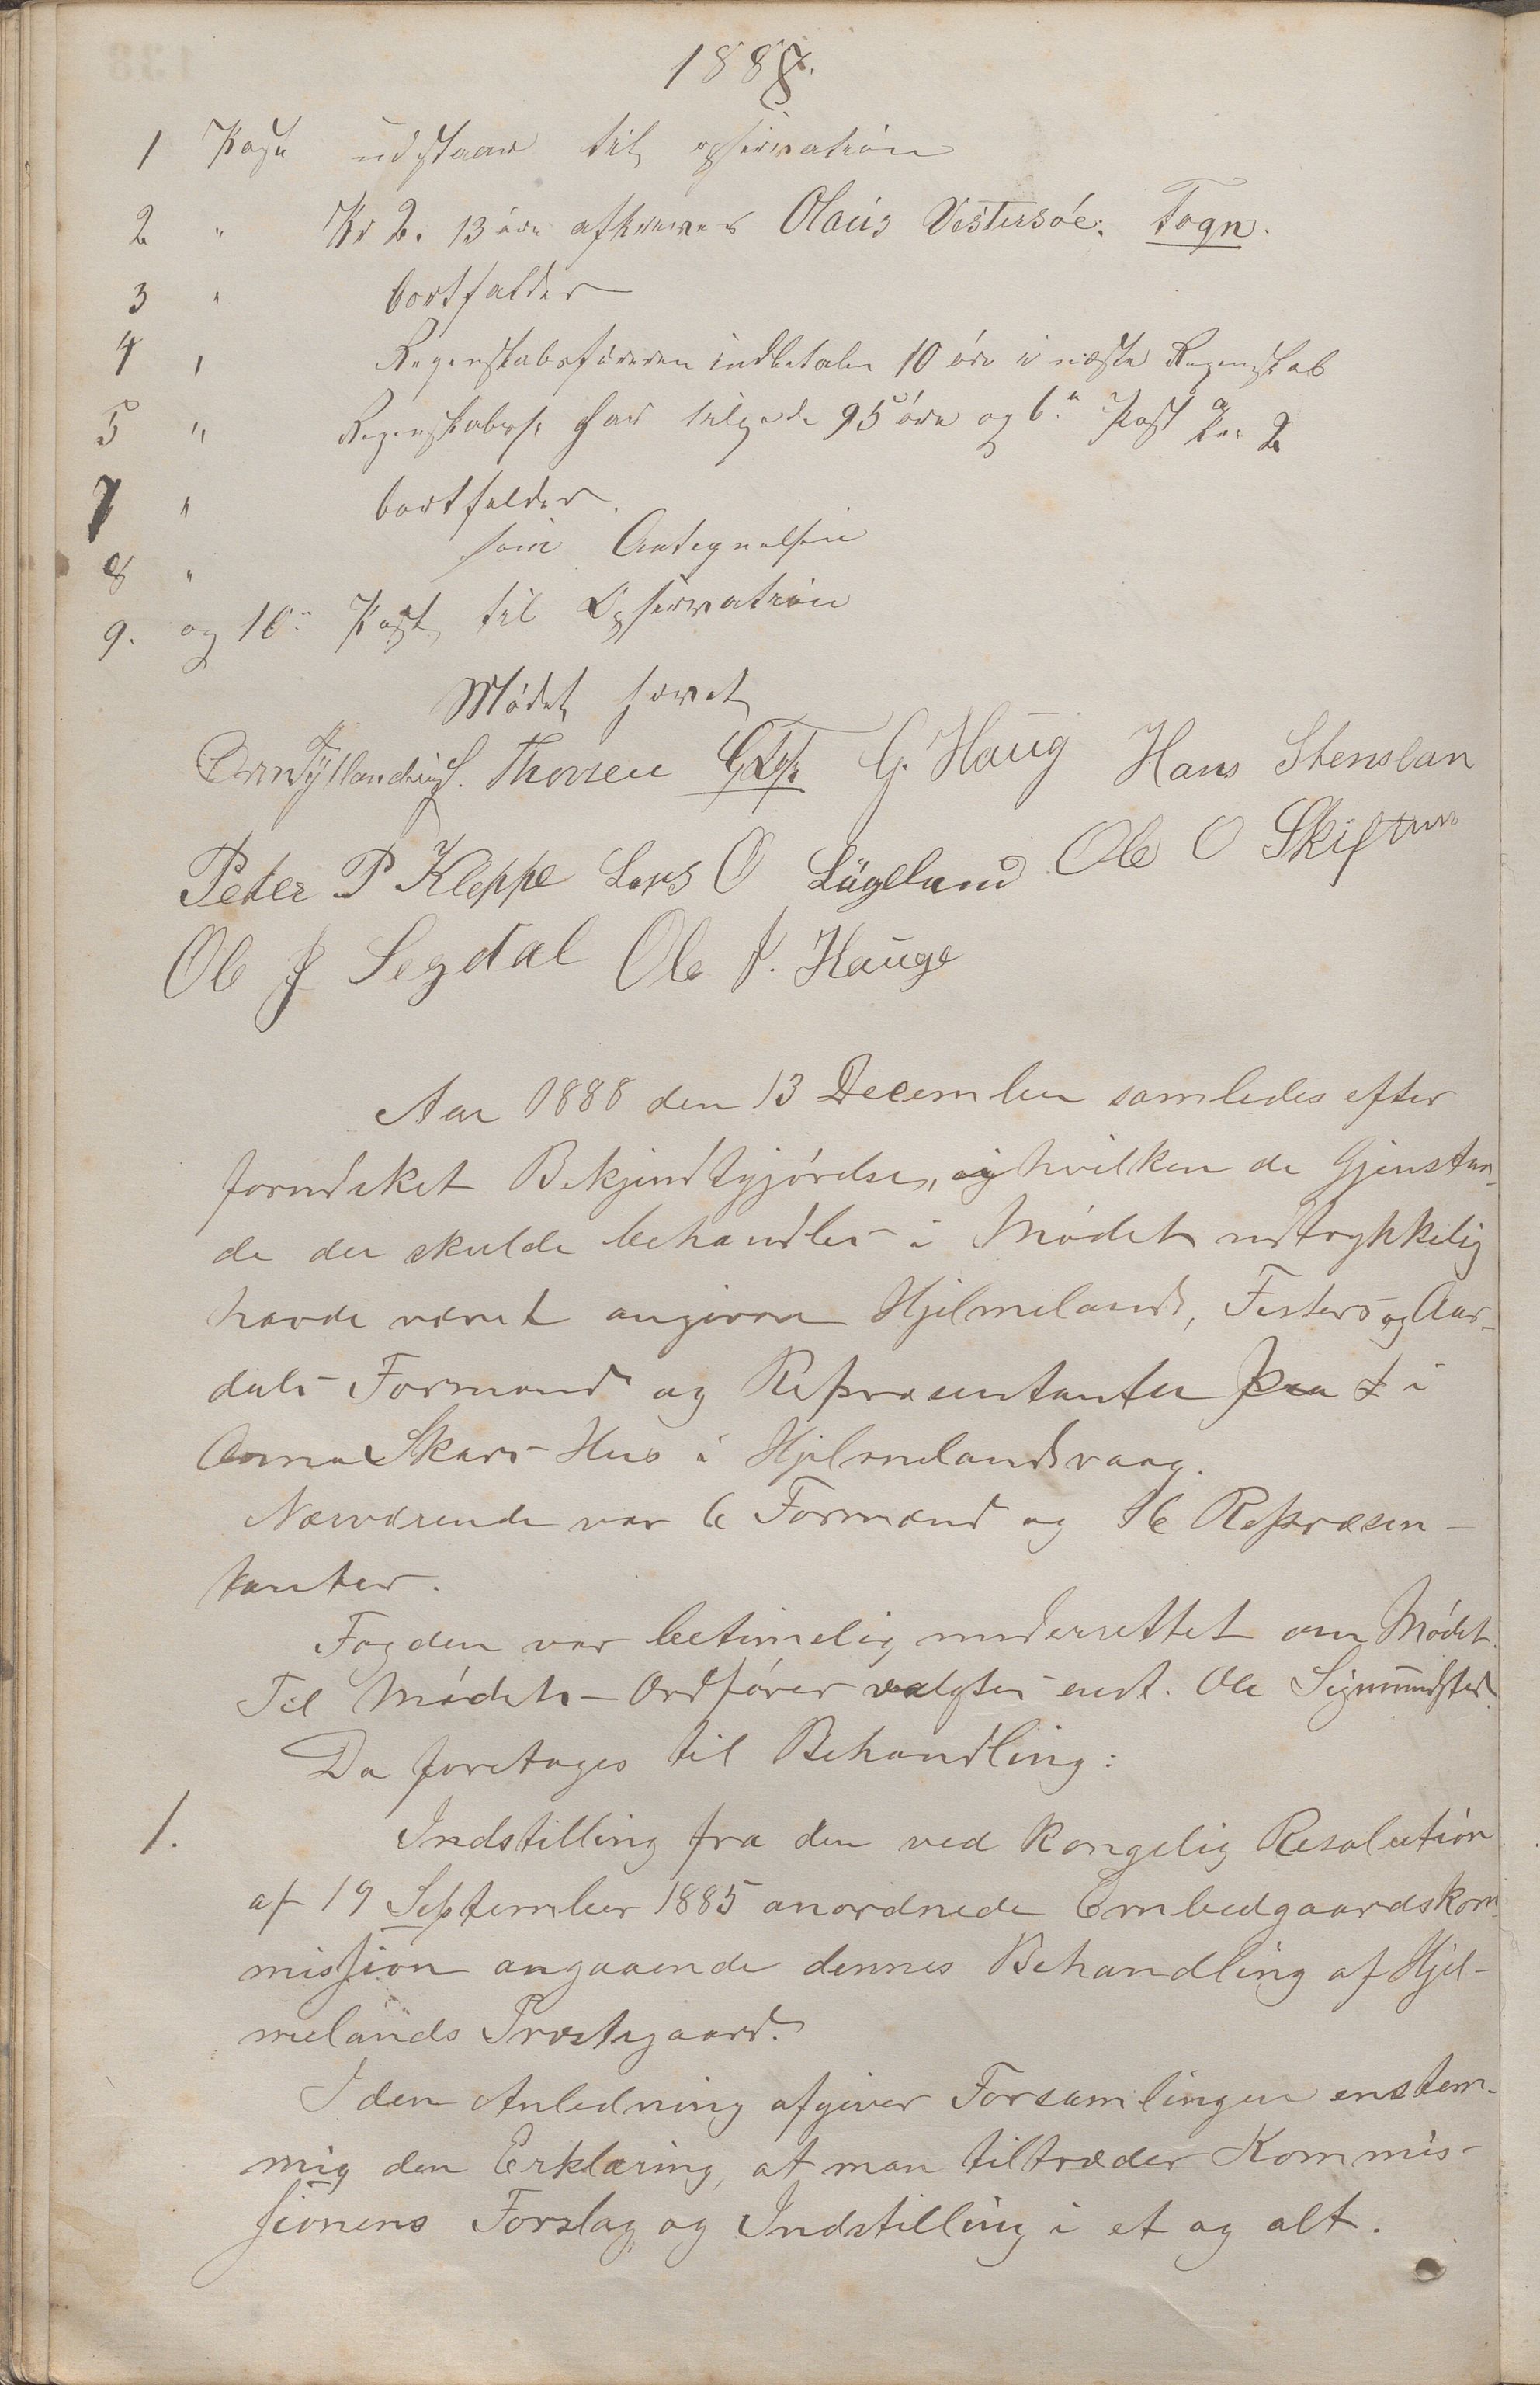 1888.
1 Post udstaar til opservation
2 " Kr 2. 13 øre afkræves Olaus Vestersøe. Fogn.
3 " bortfalder
4 " Regenskabsføreren indbetaler 10 øre i næste Regenskab
5 " Regenskabsf. har tilgode 95 øre og 6.te Post Kr. 2
7 " bortfalder.
8 " som Antegnelsen
9. og 10de Post til Opservation
Mødet hævet
Thorsen G. Haug Hans Stenslan
Peder P Kleppe Lars O Ole O Skiftun
Ole J Segdal Ole J. Hauge
Aar 1888 den 13 December samledes efter
forudsket Bekjendtgjørelse, i hvilken de Gjenstan-
de der skulde behandles i Mødet udtrykkelig
havde været angivne Hjelmelands, Fisters og Aar-
dals Formænd og Repræsentanter i
Anna Skars Hus i Hjelmelandsvaag.
Nærværende var 6 Formænd og 16 Repræsen-
tanter.
Fogden var betimelig underrettet om Mødet.
Til Mødets Ordfører valgtes enst. Ole Sigmundstad.
Da foretages til Behandling:
1. Indstilling fra den ved Kongelig Resolution
af 19 September 1885 anordnede Embedgaardskom-
mission angaaende dennes Behandling af Hjel-
melands Prestegaard.
I den Anledning afgiver Forsamlingen enstem-
mig den Erklæring, at man tiltræder Kommis-
sionens Forslag og Indstilling i et og alt.